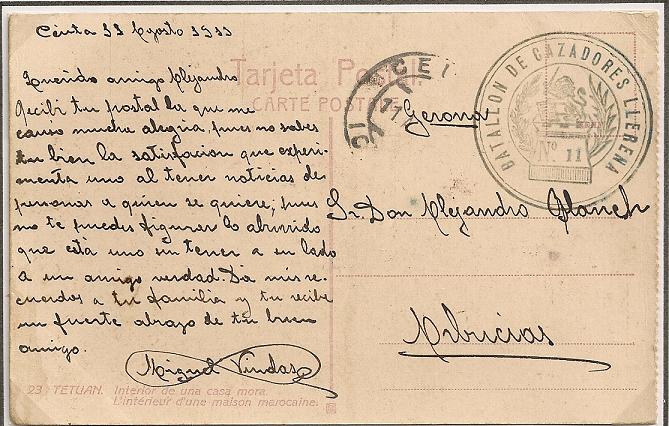 Ceuta 11 Agosto 1911
Tarjeta Postal
CARTE POSTALE
Querido amigo Alejandro
Recibi tu postal la que me
causo mucha alegria, pues no sabes
tu bien la satisfacion que experi-
menta uno al tener noticias de
personas a quien se quiere, pues
no te puedes figurar lo aburrido
que está uno sin tener a su lado
a un amigo verdad. Da mis re-
cuerdos a tu familia y tu recibe
un fuerte abrazo de tu buen
amigo.
Miguel
23 TETUAN. Interior de una casa mora.
L'intérieur d'une maison marocaine.
BATALLON DE CAZADORES LLERENA
Nº 11
Gerona
Sr. Don Alejandro Planch
Arbucias